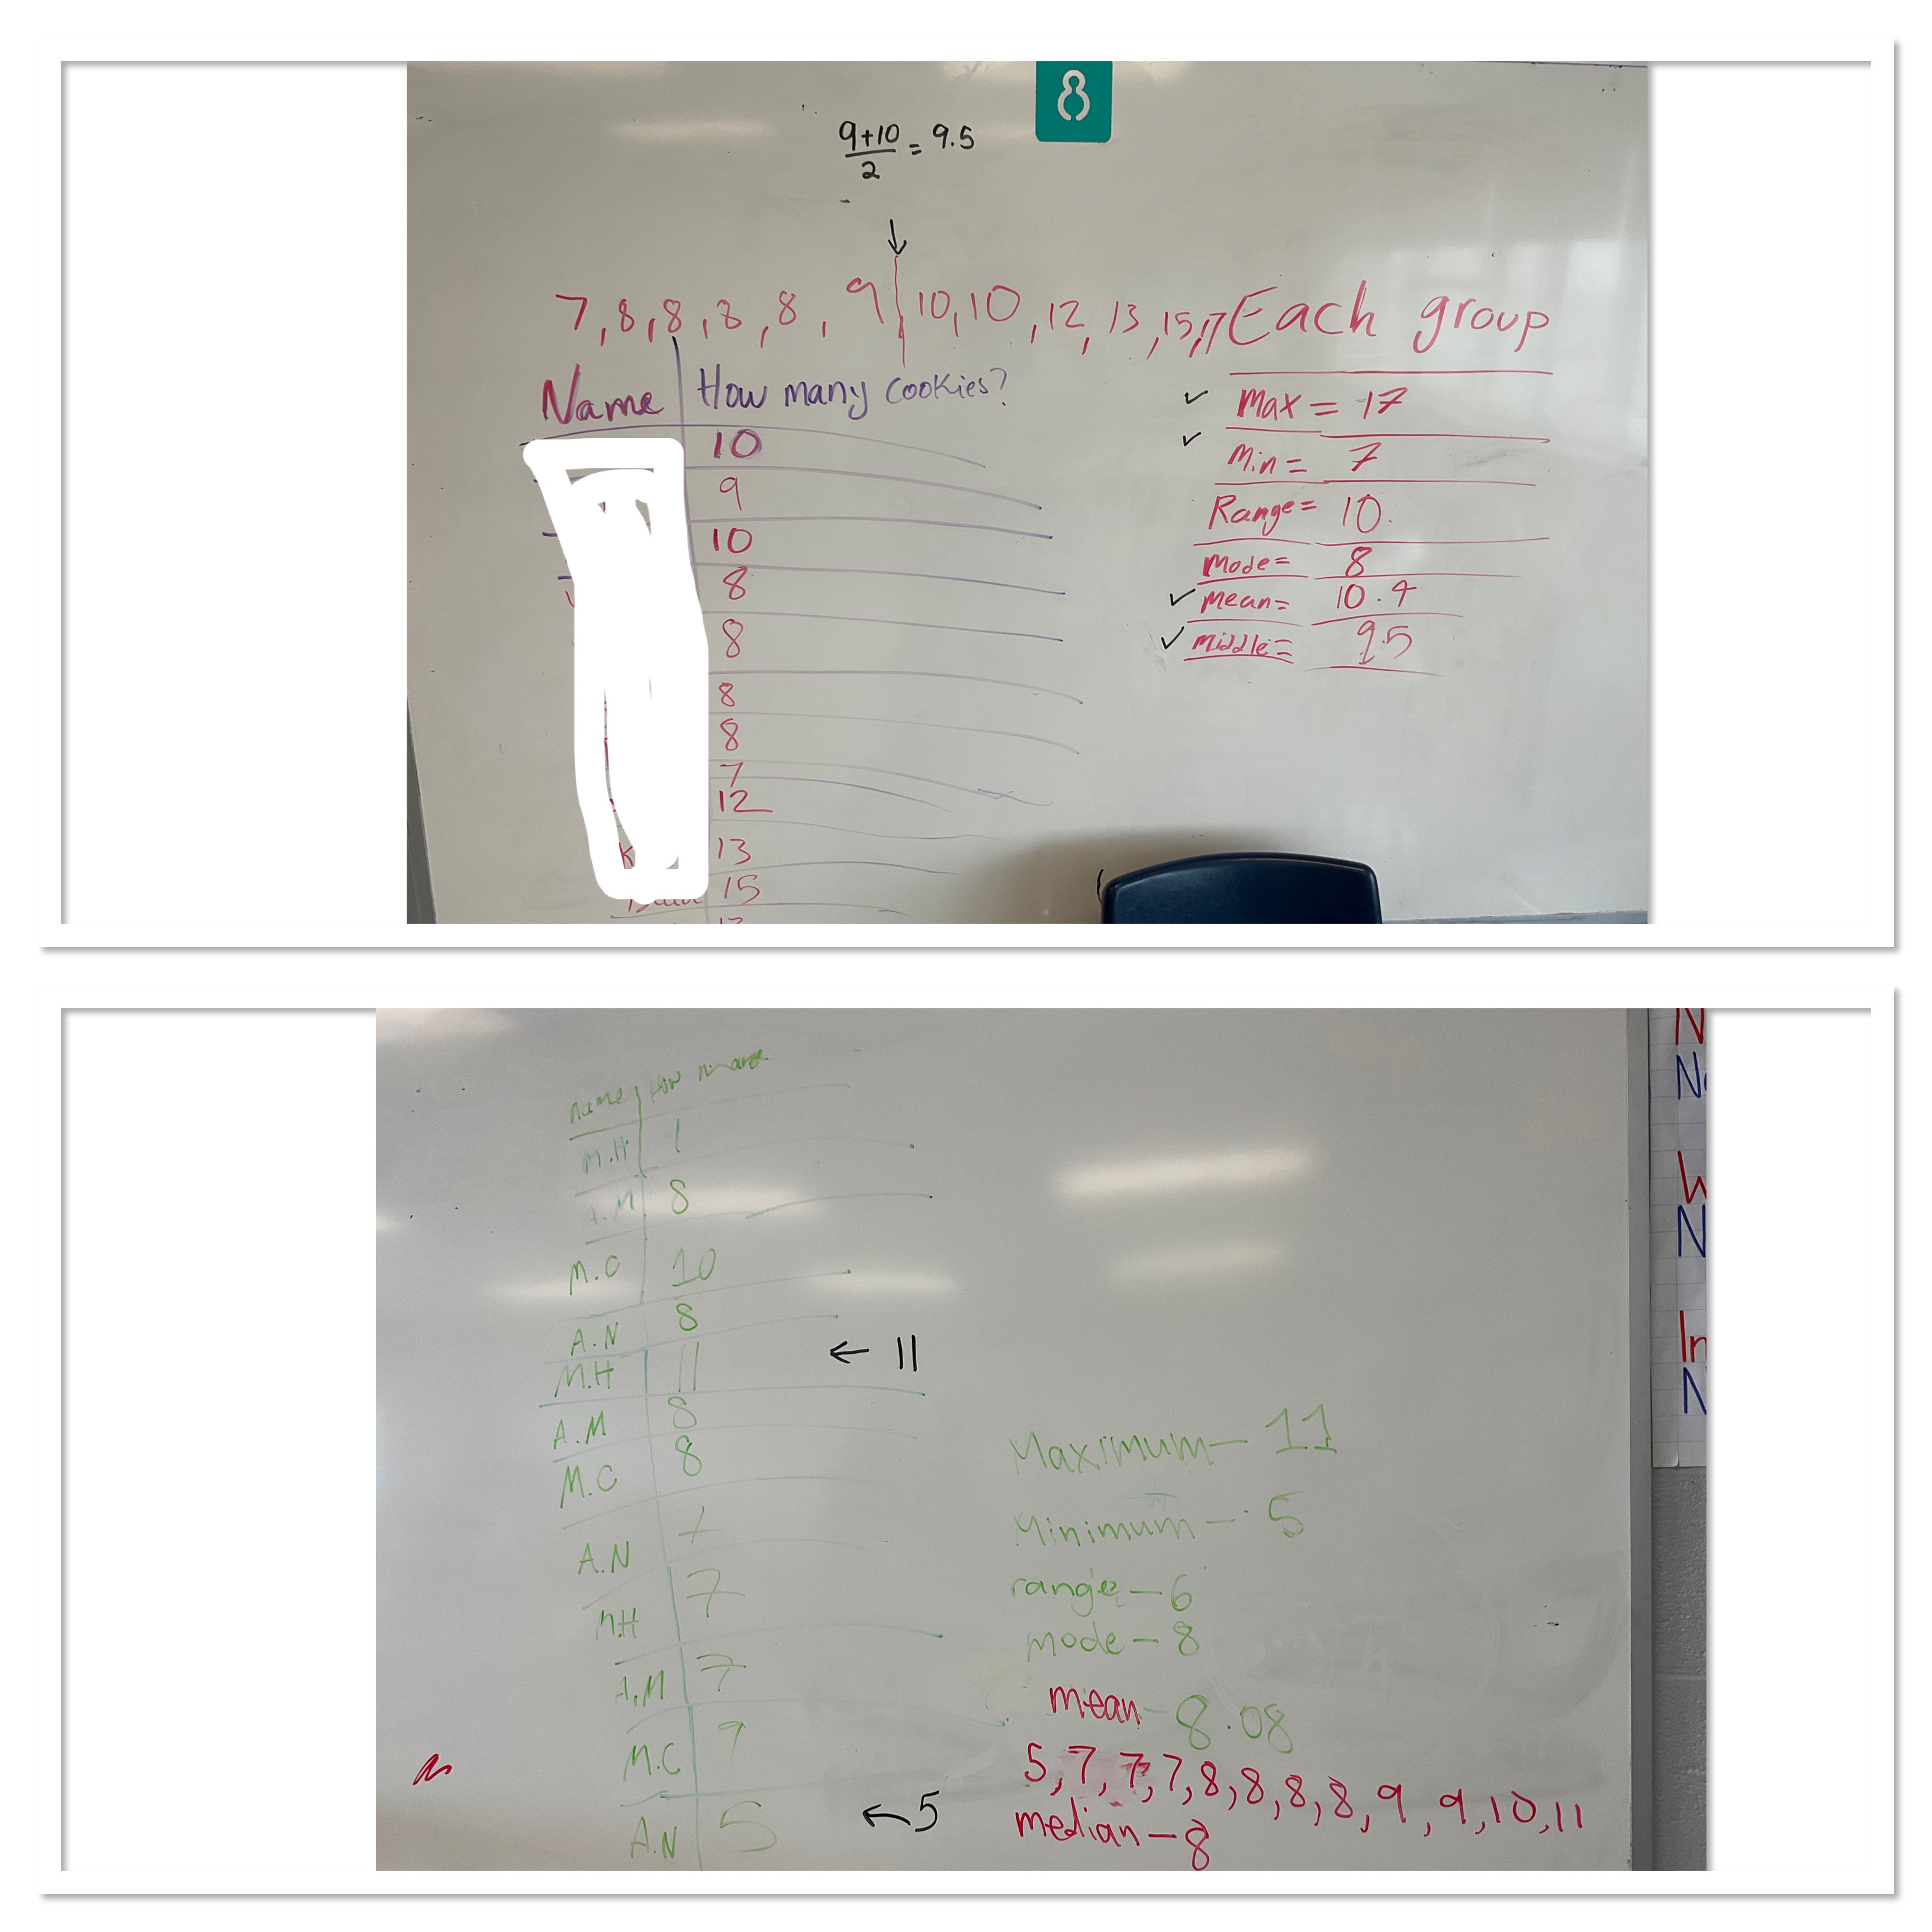 8
9+10
2
= 9.5
↓
7, 8, 8, 8, 8, 9 | 10, 10, 12, 13, 15, 17
Each group
Name | How many cookies?
10
9
10
8
8
8
8
7
12
13
15
✓ Max = 17
✓ Min = 7
Range = 10.
Mode = 8
✓ Mean = 10.4
✓ Middle = 9.5
name | How
M.H | 9
A.M | 8
M.C | 10
A.N | 8
M.H | 11 ← 11
A.M | 8
M.C | 8
A.N | 7
M.H | 7
A.M | 7
M.C | 9
A.N | 5 ← 5
Maximum - 11
Minimum - 5
range - 6
mode - 8
mean - 8.08
5, 7, 7, 7, 8, 8, 8, 8, 9, 9, 10, 11
median - 8
N
No
W
N
In
N